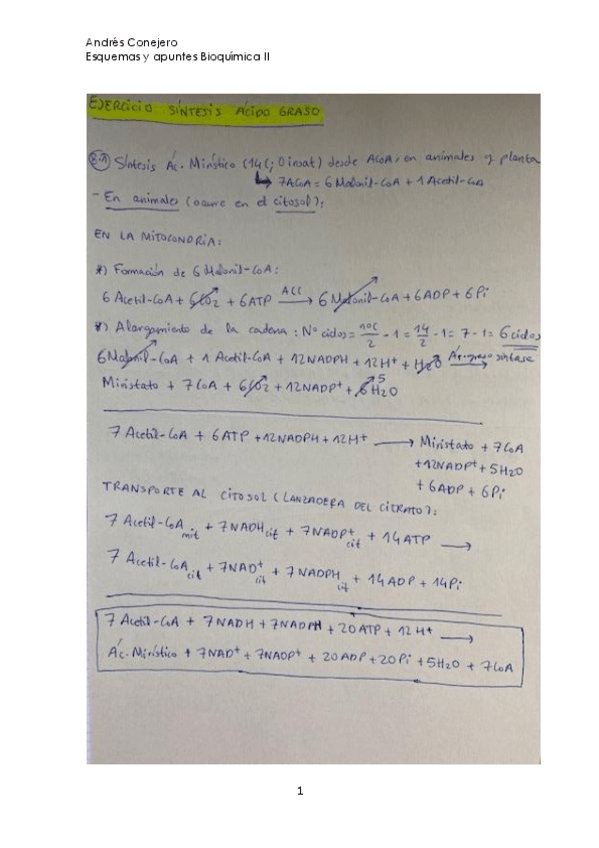 Andrés Conejero
Esquemas y apuntes Bioquímica II
EJERCICIO SÍNTESIS ÁCIDO GRASO
Síntesis Ác. Mirístico (14C; 0 insat) desde ACoA, en animales y planta
↳ 7ACoA = 6 Malonil-CoA + 1 Acetil-CoA
- En animales (ocurre en el citosol):
EN LA MITOCONDRIA:
*) Formación de 6 Malonil-CoA:
6 Acetil-CoA + 6CO2 + 6ATP ACC → 6 Malonil-CoA + 6ADP + 6Pi
*) Alargamiento de la cadena: Nº ciclos = nºC/2 - 1 = 14/2 - 1 = 7 - 1 = 6 ciclos
6 Malonil-CoA + 1 Acetil-CoA + 12NADPH + 12H+ + H2O Ác. graso sintasa →
Miristato + 7CoA + 6CO2 + 12NADP+ + 6 5 H2O
7 Acetil-CoA + 6ATP + 12NADPH + 12H+ → Miristato + 7CoA
+12NADP+ + 5H2O
+ 6ADP + 6Pi
TRANSPORTE AL CITOSOL (LANZADERA DEL CITRATO):
7 Acetil-CoA mit + 7NADH cit + 7NADP+ cit + 14ATP →
7 Acetil-CoA cit + 7NAD+ cit + 7NADPH cit + 14ADP + 14Pi
7 Acetil-CoA + 7NADH + 7NADPH + 20ATP + 12H+ →
Ác. Mirístico + 7NAD+ + 7NADP+ + 20ADP + 20Pi + 5H2O + 7CoA
1